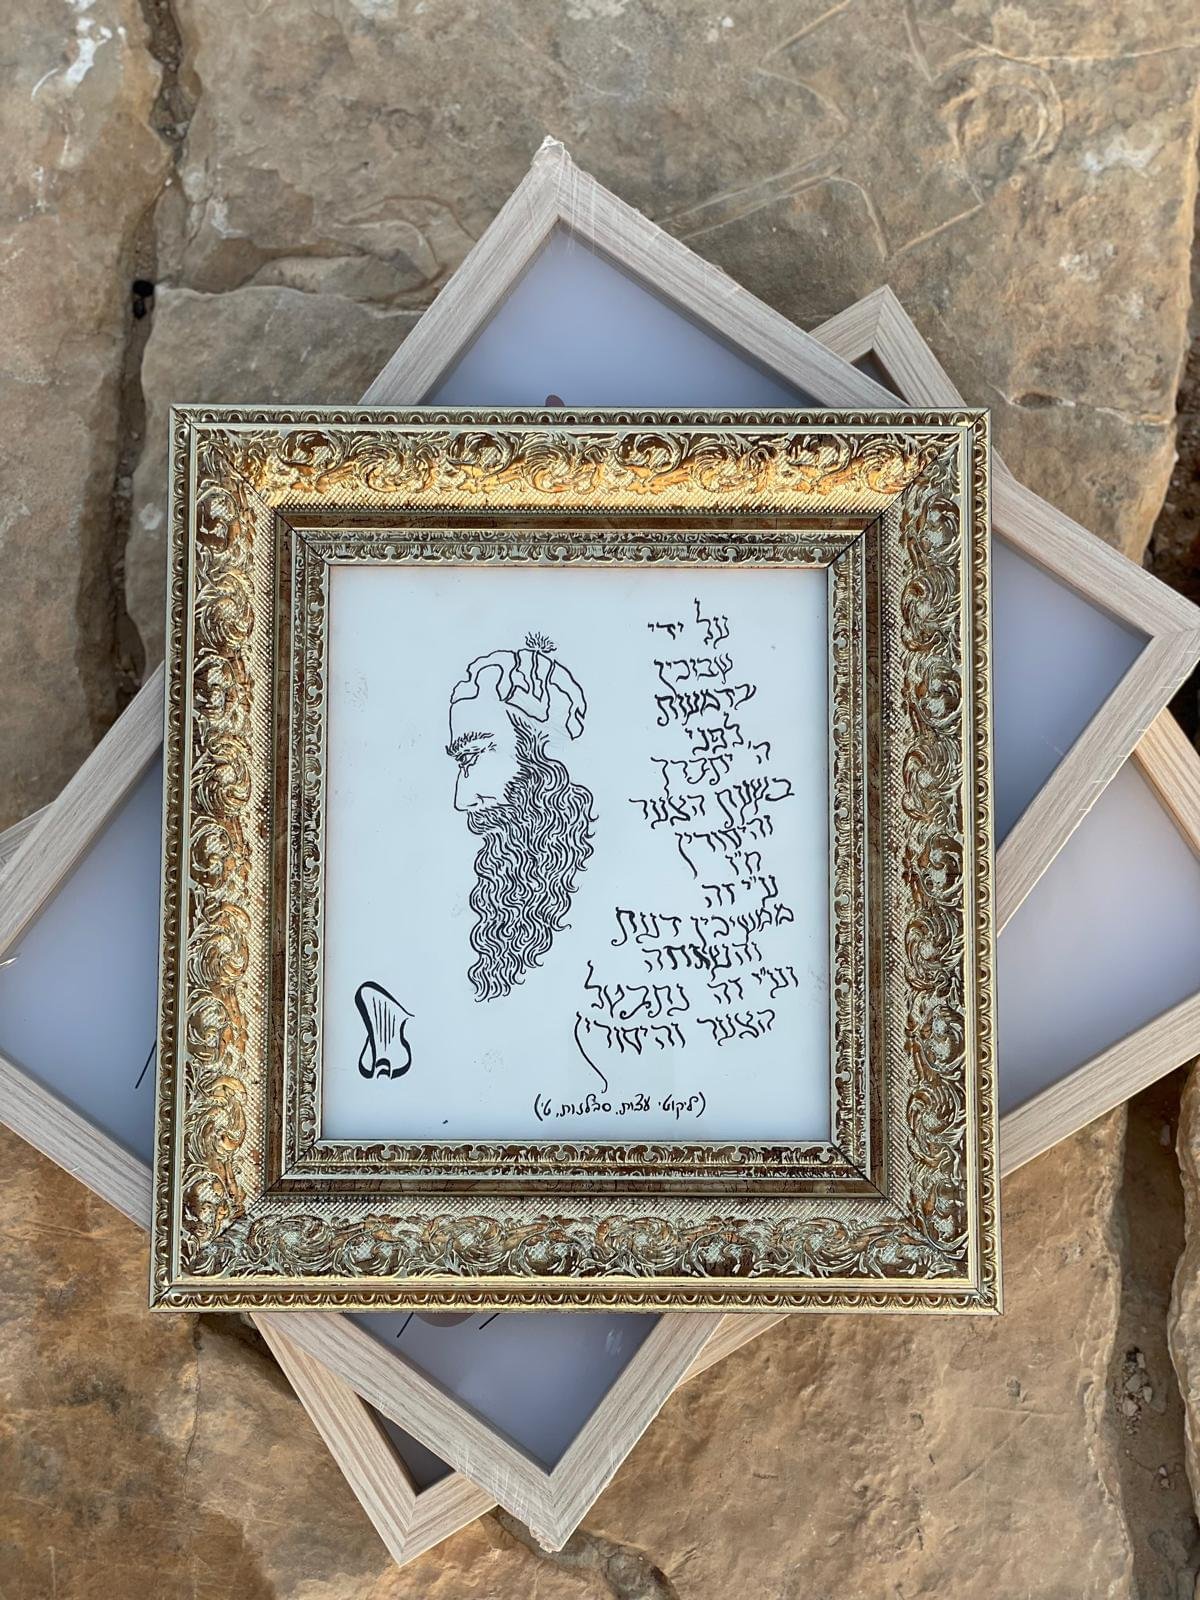 על ידי
שבוכין
בדמעות
לפני
ה' יתברך
בשעת הצער
והיסורין
ח"ו
ע"י זה
ממשיכין דעת
והשגחה
ועי"ז זה נתבטל
הצער והיסורין
(ליקוטי עצות, סבלנות, ט')